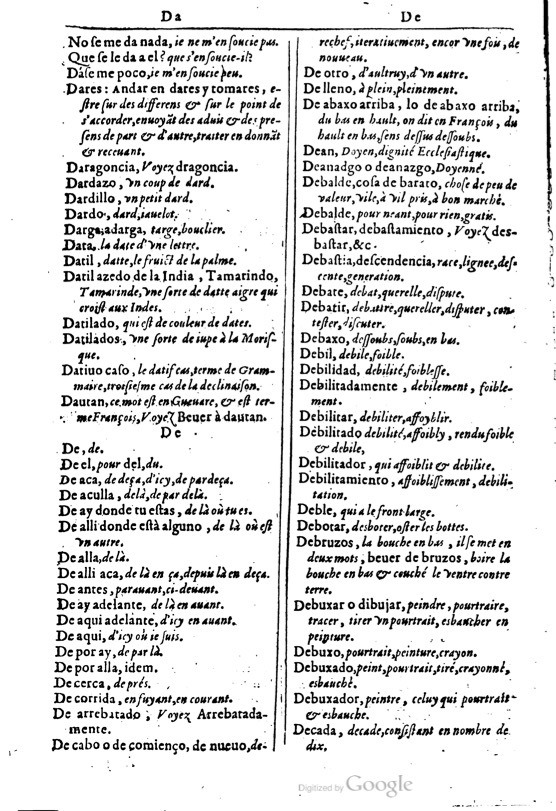 Da
No ſe me da nada, ie ne m'en ſoucie pas.
Que ſe le da a el? que s'en ſoucie-il?
Dáſe me poco, ie m'en ſoucie peu.
Dares: Andar en dares y tomares, e-
ſtre ſur des differens & ſur le point de
s'accorder, enuoyãt des aduis & des pre-
ſens de part & d'autre, traiter en donnãt
& receuant.
Daragoncia, Voyez dragoncia.
Dardazo, vn coup de dard.
Dardillo, vn petit dard.
Dardo, dard, iauelot.
Darga, adarga, targe, bouclier.
Data, la date d'vne lettre.
Datil, datte, le fruict de la palme.
Datil azedo de la India, Tamarindo,
Tamarinde, vne ſorte de datte aigre qui
croiſt aux Indes.
Datilado, qui eſt de couleur de dates.
Datilados, vne ſorte de iupe à la Moriſ-
que.
Datiuo caſo, le datif cas, terme de Gram-
maire, troiſieſme cas de la declinaiſon.
Dautan, ce mot eſt en Gueuare, & eſt ter-
me François, Voyez Beuer à dautan.
De
De, de.
De el, pour del, du.
De aca, de deça, d'icy, de par deça.
De aculla, delà, de par delà.
De ay donde tu eſtas, de là où tu es.
De alli donde eſtà alguno, de là où eſt
vn autre.
De alla, de là.
De alli aca, de là en ça, depuis là en deça.
De antes, parauant, ci-deuant.
De ay adelante, de là en auant.
De aqui adelante, d'icy en auant.
De aqui, d'icy où ie ſuis.
De por ay, de par là.
De por alla, idem.
De cerca, de prés.
De corrida, en fuyant, en courant.
De arrebatado, Voyez Arrebatada-
mente.
De cabo o de comienço, de nueuo, de-
De
rechef, iteratiuement, encor vne fois, de
nouueau.
De otro, d'aultruy, d'vn autre.
De lleno, à plein, pleinement.
De abaxo arriba, lo de abaxo arriba,
du bas en hault, on dit en François, du
hault en bas, ſens deſſus deſſoubs.
Dean, Doyen, dignité Eccleſiaſtique.
Deanadgo o deanazgo, Doyenné.
Debalde, coſa de barato, choſe de peu de
valeur, vile, à vil pris, à bon marché.
Debalde, pour neant, pour rien, gratis.
Debaſtar, debaſtamiento, Voyez des-
baſtar, &c.
Debaſtia, deſcendencia, race, lignee, deſ-
cente, generation.
Debate, debat, querelle, diſpute.
Debatir, debattre, quereller, diſputer, con-
teſter, diſcuter.
Debaxo, deſſoubs, ſoubs, en bas.
Debil, debile, foible.
Debilidad, debilité, foibleſſe.
Debilitadamente, debilement, foible-
ment.
Debilitar, debiliter, affoyblir.
Debilitado debilité, affoibly, rendu foible
& debile,
Debilitador, qui affoiblit & debilite.
Debilitamiento, affoibliſſement, debili-
tation.
Deble, qui a le front large.
Debotar, desboter, oſter les bottes.
Debruzos, la bouche en bas, il ſe met en
deux mots, beuer de bruzos, boire la
bouche en bas & couché le ventre contre
terre.
Debuxar o dibujar, peindre, pourtraire,
tracer, tirer vn pourtrait, esbaucher en
peinture.
Debuxo, pourtrait, peinture, crayon.
Debuxado, peint, pourtrait, tiré, crayonné,
esbauché.
Debuxador, peintre, celuy qui pourtrait
& esbauche.
Decada, decade, conſiſtant en nombre de
dix.
Digitized by Google